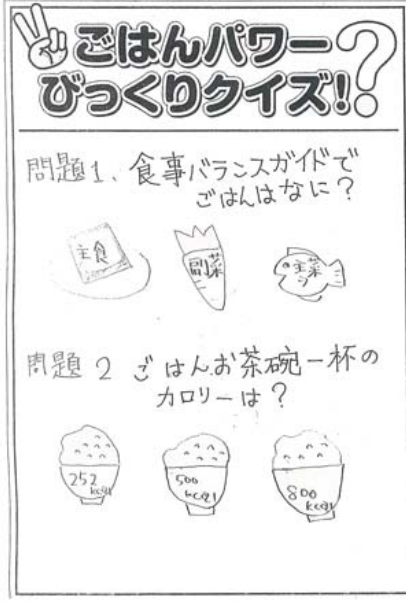 ごはんパワー
びっくりクイズ!?
問題1、食事バランスガイドで
ごはんはなに?
主食
副菜
主菜
問題2 ごはんお茶碗一杯の
カロリーは?
252
kcal
500
kcal
800
kcal